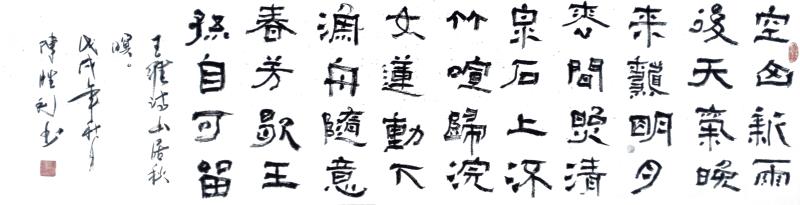 空山新雨
後天氣晚
来龝明月
松間照清
泉石上流
竹喧歸浣
女蓮動下
漁舟隨意
春芳歇王
孫自可留
王維詩山居秋
暝。
戊戌年秋月
陳胜利书